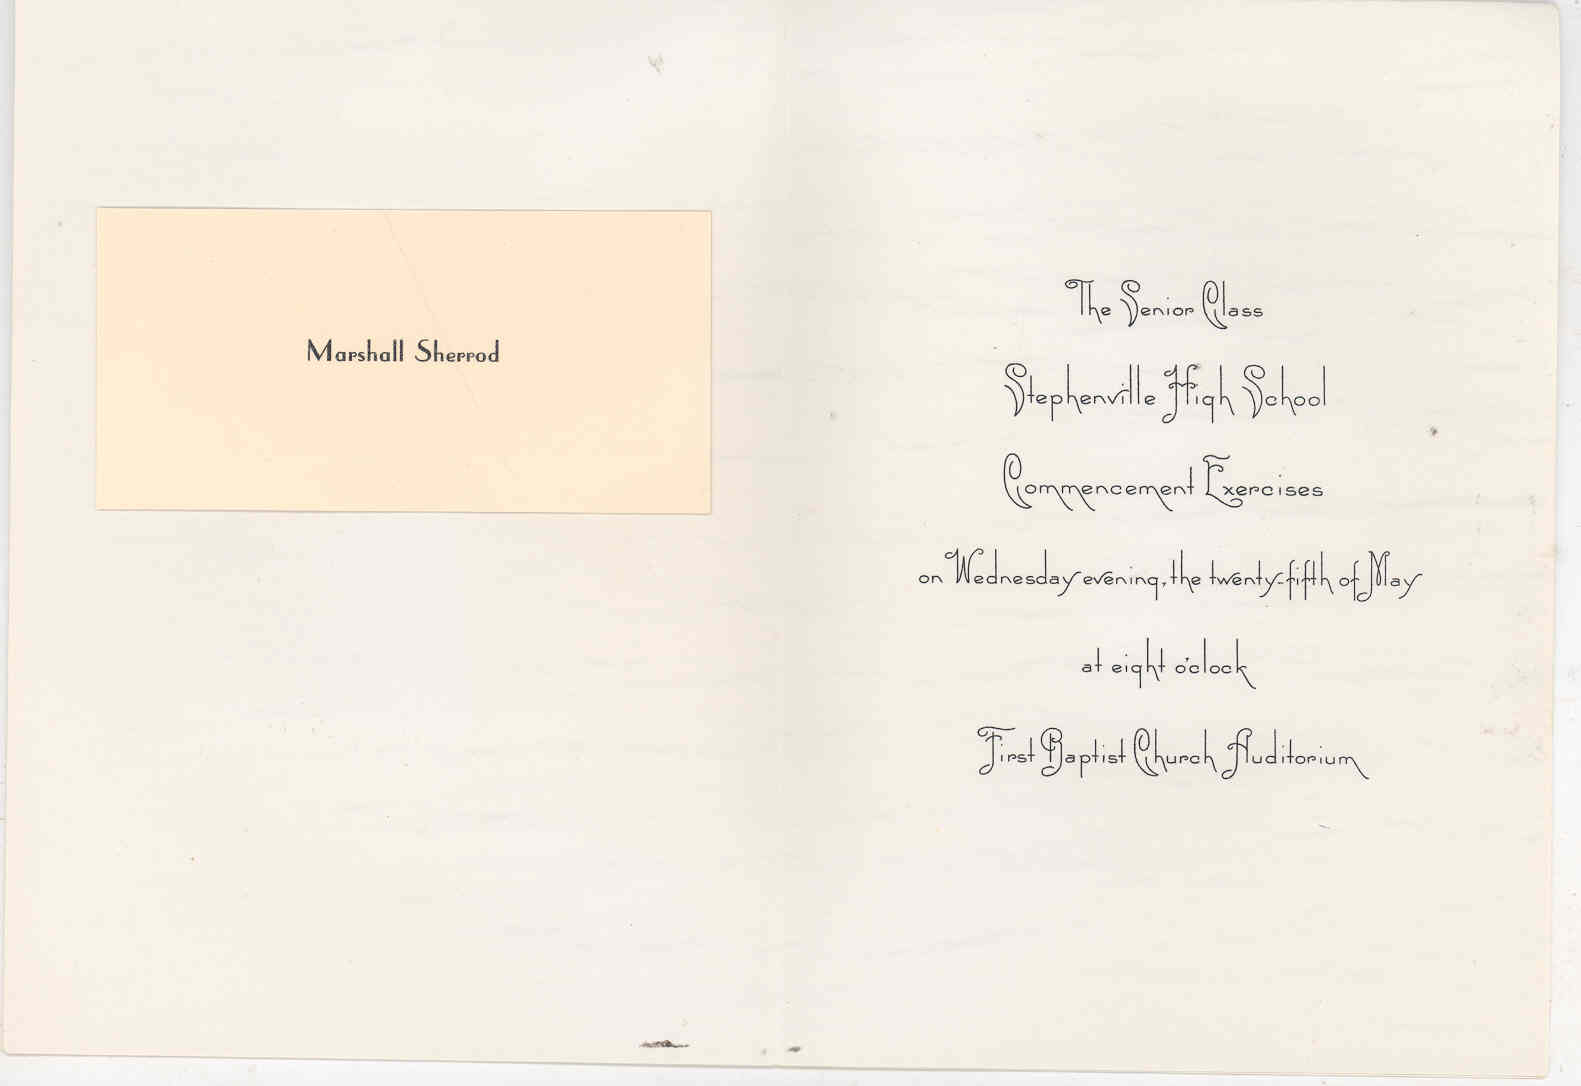 Marshall Sherrod
The Senior Class
Stephenville High School
Commencement Exercises
on Wednesday evening, the twenty-fifth of May
at eight o'clock
First Baptist Church Auditorium